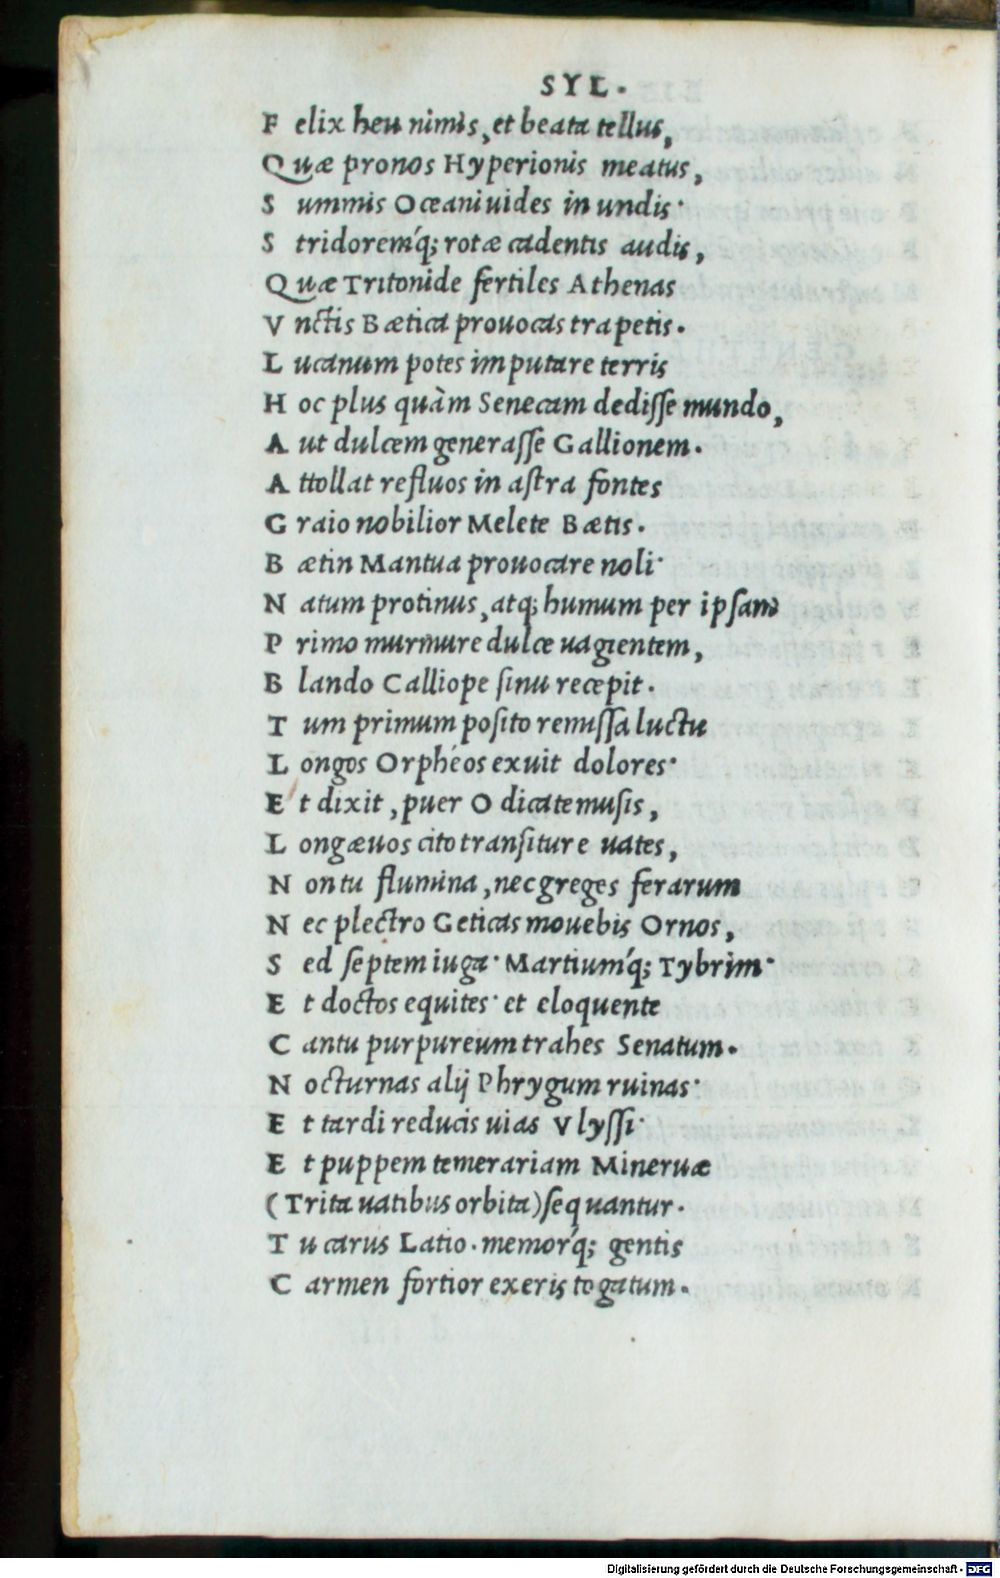 SYL.
F elix heu nimis, et beata tellus,
Quæ pronos Hyperionis meatus,
S ummis Oceani uides in undis·
S tridoremq́; rotæ cadentis audis,
Quæ Tritonide fertiles Athenas
V nctis Bætica prouocas trapetis.
L ucanum potes imputare terris
H oc plus quàm Senecam dedisse mundo,
A ut dulcem generasse Gallionem.
A ttollat refluos in astra fontes
G raio nobilior Melete Bætis.
B ætin Mantua prouocare noli·
N atum protinus, atq; humum per ipsam
P rimo murmure dulce uagientem,
B lando Calliope sinu recepit.
T um primum posito remissa luctu
L ongos Orphéos exuit dolores·
E t dixit, puer O dicate musis,
L ongæuos cito transiture uates,
N on tu flumina, nec greges ferarum
N ec plectro Geticas mouebis Ornos,
S ed septem iuga· Martiumq́; Tybrim·
E t doctos equites· et eloquente
C antu purpureum trahes Senatum.
N octurnas alij Phrygum ruinas·
E t tardi reducis uias Vlyssi·
E t puppem temerariam Mineruæ
(Trita uatibus orbita) sequantur.
T u carus Latio. memorq́; gentis
C armen fortior exeris togatum.
Digitalisierung gefördert durch die Deutsche Forschungsgemeinschaft - DFG